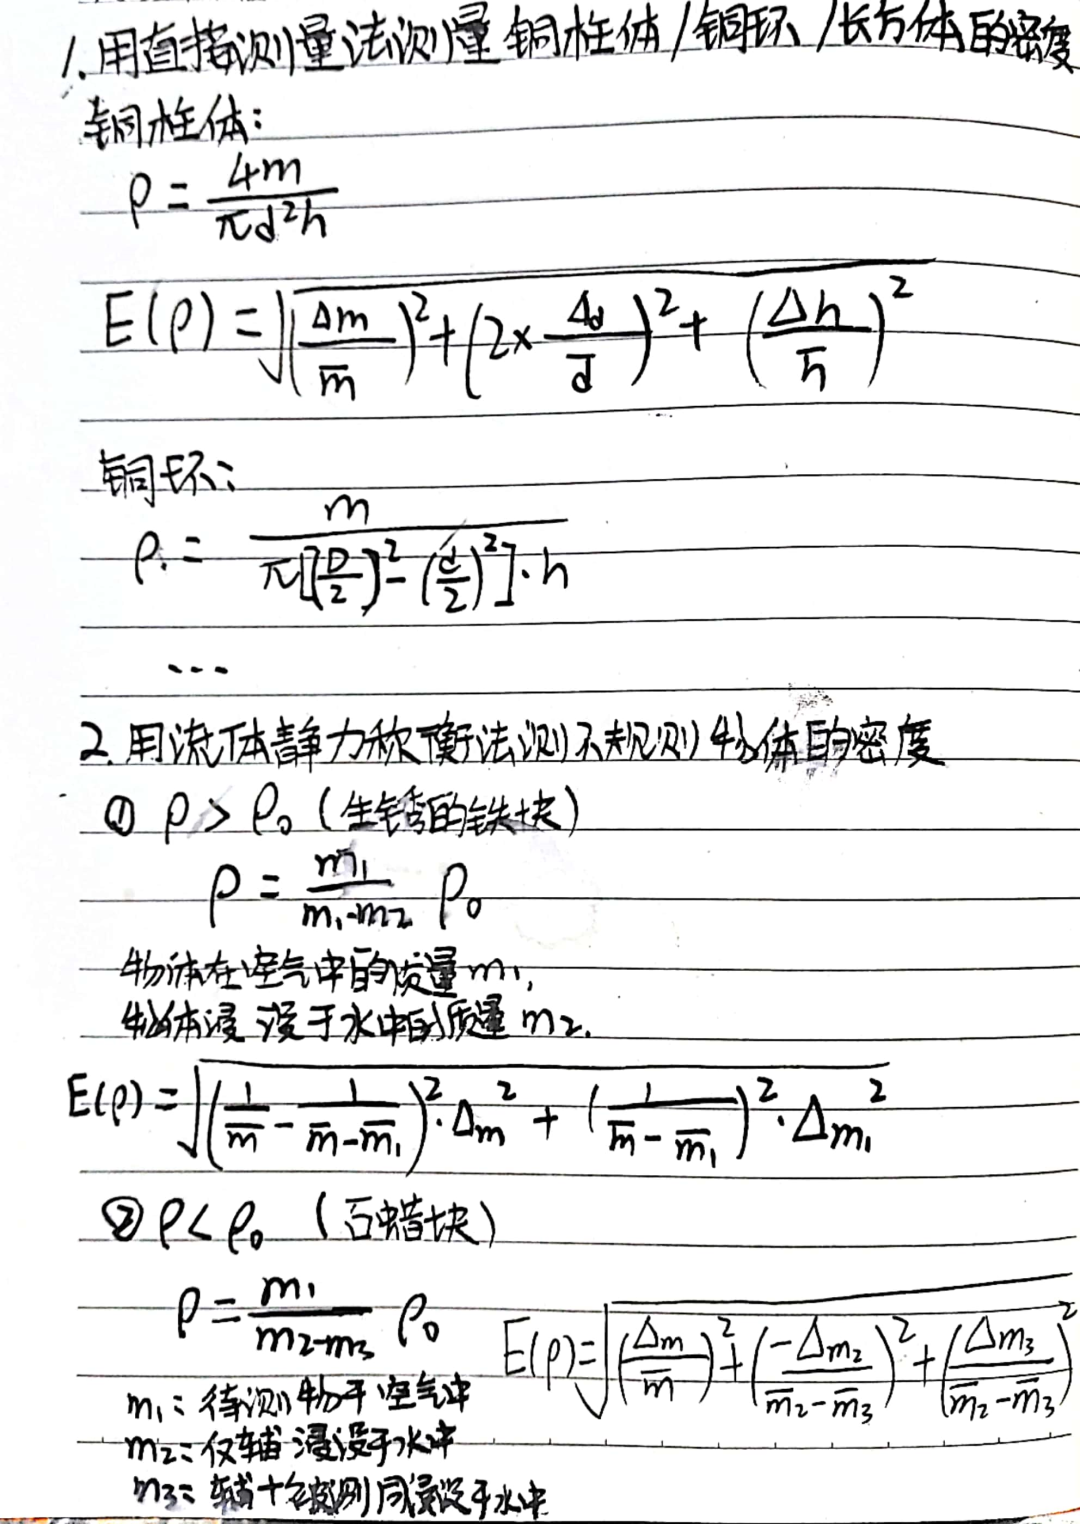 1. 用直接测量法测量铜柱体/铜环/长方体的密度
铜柱体:
ρ = 4m / πd²h
E(ρ) = √((Δm/m̅)² + (2×Δd/d̅)² + (Δh/h̅)²)
铜环:
ρ. = m / π[(D/2)² - (d/2)²]·h
...
2. 用流体静力称衡法测不规则物体的密度
① ρ > ρ₀ (生锈的铁块)
ρ = m₁/(m₁-m₂) ρ₀
物体在空气中的质量 m₁,
物体浸没于水中的质量 m₂.
E(ρ) = √((1/m̅ - 1/(m̅-m̅₁))²·Δm² + (1/(m̅-m̅₁))²·Δm₁²)
② ρ < ρ₀ (石蜡块)
ρ = m₁/(m₂-m₃) ρ₀
E(ρ) = √((Δm/m̅)² + (-Δm₂/(m̅₂-m̅₃))² + (Δm₃/(m̅₂-m̅₃))²)
m₁: 待测物于空气中
m₂: 仅辅浸没于水中
m₃: 辅+被测同浸没于水中